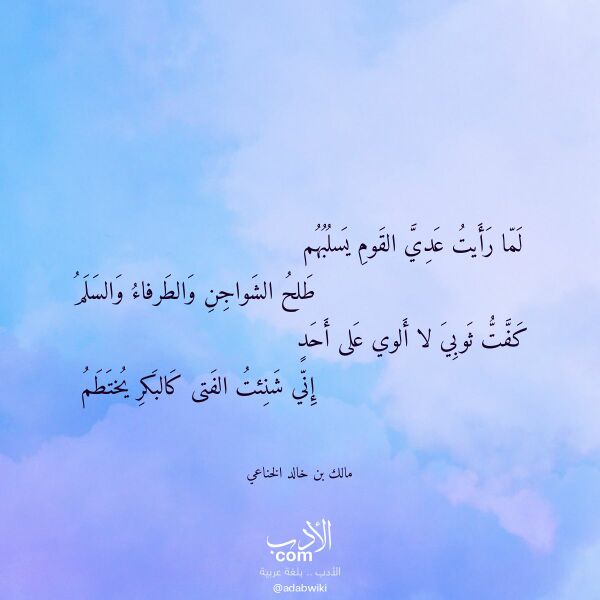 لَمّا رَأَيتُ عَدِيَّ القَومِ يَسلُبُهُم
طَلحُ الشَواجِنِ وَالطَرفاءُ وَالسَلَمُ
كَفَّتُّ ثَوبِيَ لا أَلوي عَلى أَحَدٍ
إِنّي شَنِئتُ الفَتى كَالبَكرِ يُختَطَمُ
مالك بن خالد الخناعي
الأدب
com
الأدب .. بلغة عربية
@adabwiki